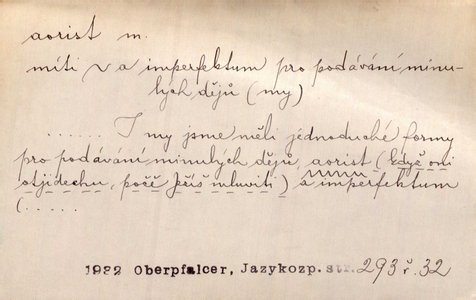 aorist m.
míti v a imperfektum pro podávání minu-
lých dějů (my)
...... I my jsme měli jednoduché formy
pro podávání minulých dějů, aorist (když oni
otjidechu, počě Ježíš mluviti) a imperfektum
(.....
1932 Oberpfalcer, Jazykozp. str. 293 ř. 32